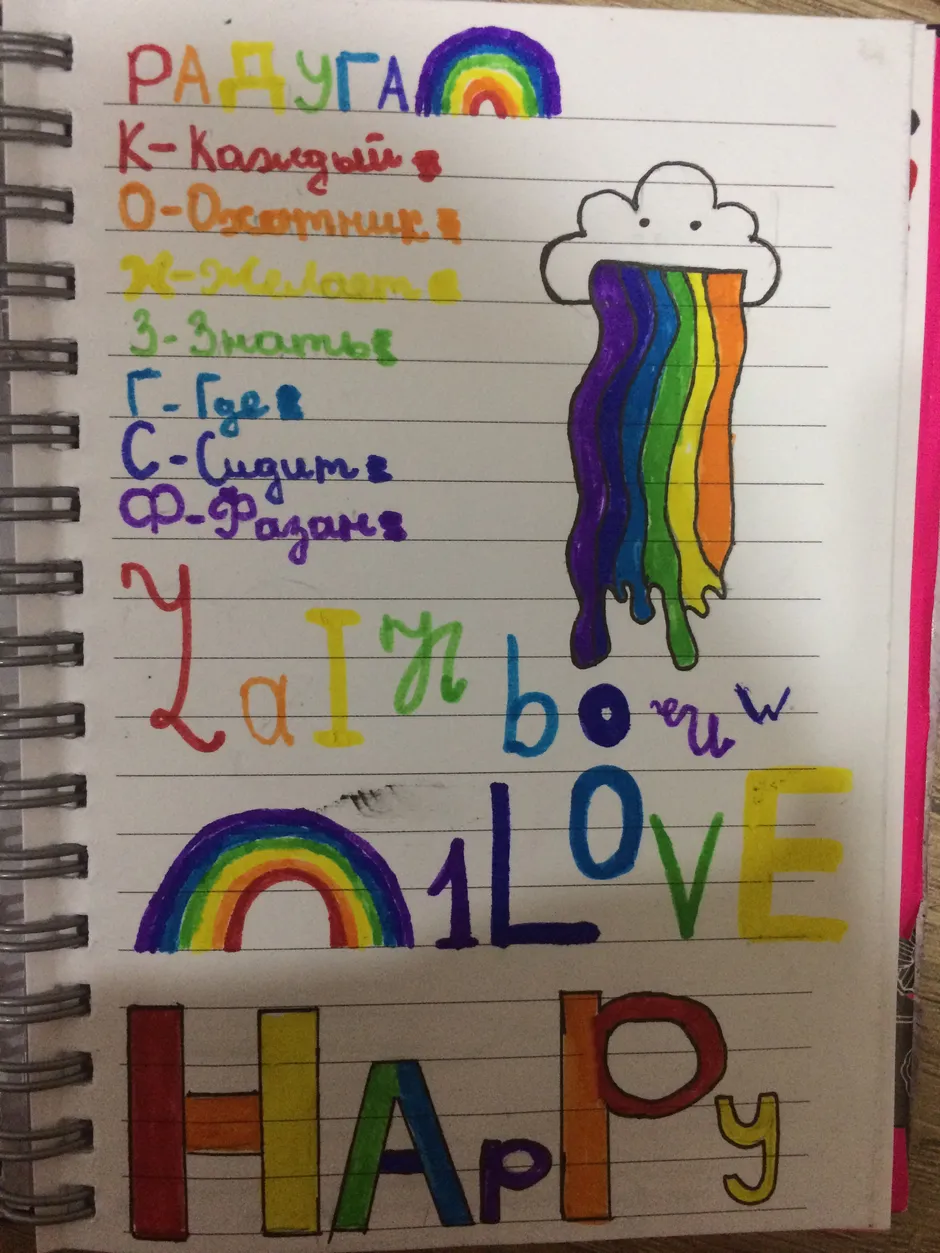 РАДУГА
К-Каждый
О-Охотник
Ж-Желает
З-Знать
Г-Где
С-Сидит
Ф-Фазан
bow
1LOVE
HAppy